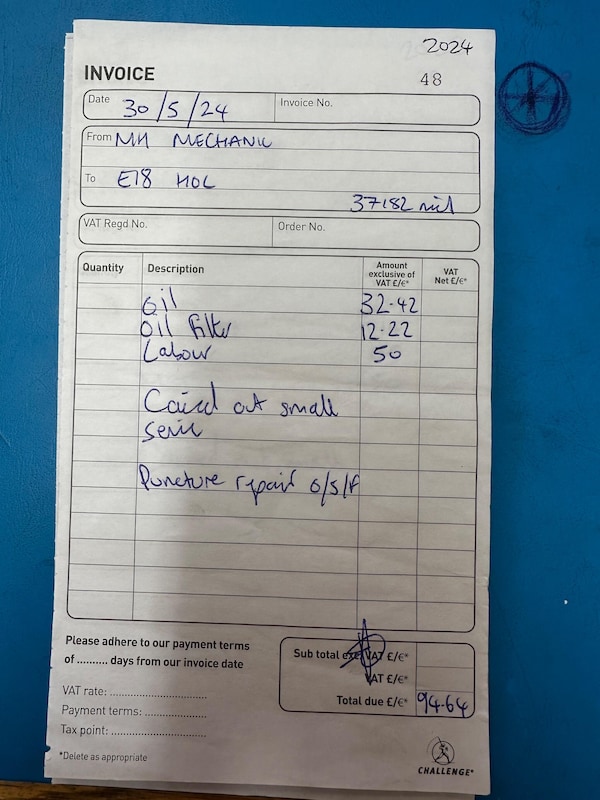 2024
INVOICE
48
Date 30/5/24 Invoice No.
From MH MECHANIC
To E18 HOL
37182 mil
VAT Regd No. Order No.
Quantity Description Amount exclusive of VAT £/€* VAT Net £/€*
Oil 32.42
Oil filter 12.22
Labour 50
out small
Puncture repair o/s/f
Please adhere to our payment terms
of .......... days from our invoice date
Sub total exc VAT £/€*
VAT £/€*
VAT rate: ..............................
Total due £/€* 94.64
Payment terms: ....................
Tax point: ..............................
*Delete as appropriate
CHALLENGE®